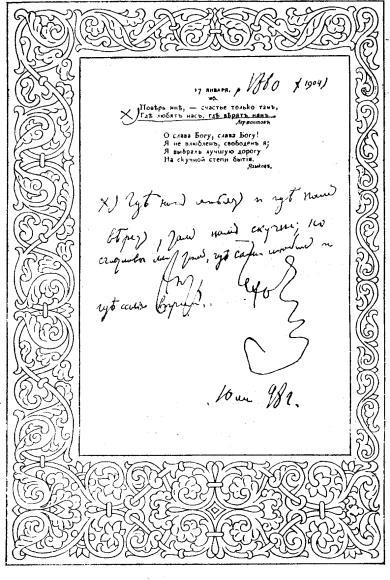 17 ЯНВАРЯ. р. 1860 † 1904)
Повѣрь мнѣ, — счастье только тамъ,
х) Гдѣ любятъ насъ, гдѣ вѣрятъ намъ.
Лермонтовъ.
О слава Богу, слава Богу!
Я не влюбленъ, свободенъ я;
Я выбралъ лучшую дорогу
На скучной степи бытія.
Языковъ.
х) Гдѣ насъ любятъ и гдѣ намъ
вѣрятъ, тамъ намъ скучно; но
счастливы мы тамъ, гдѣ сами любимъ и
гдѣ сами вѣримъ..
98 г.